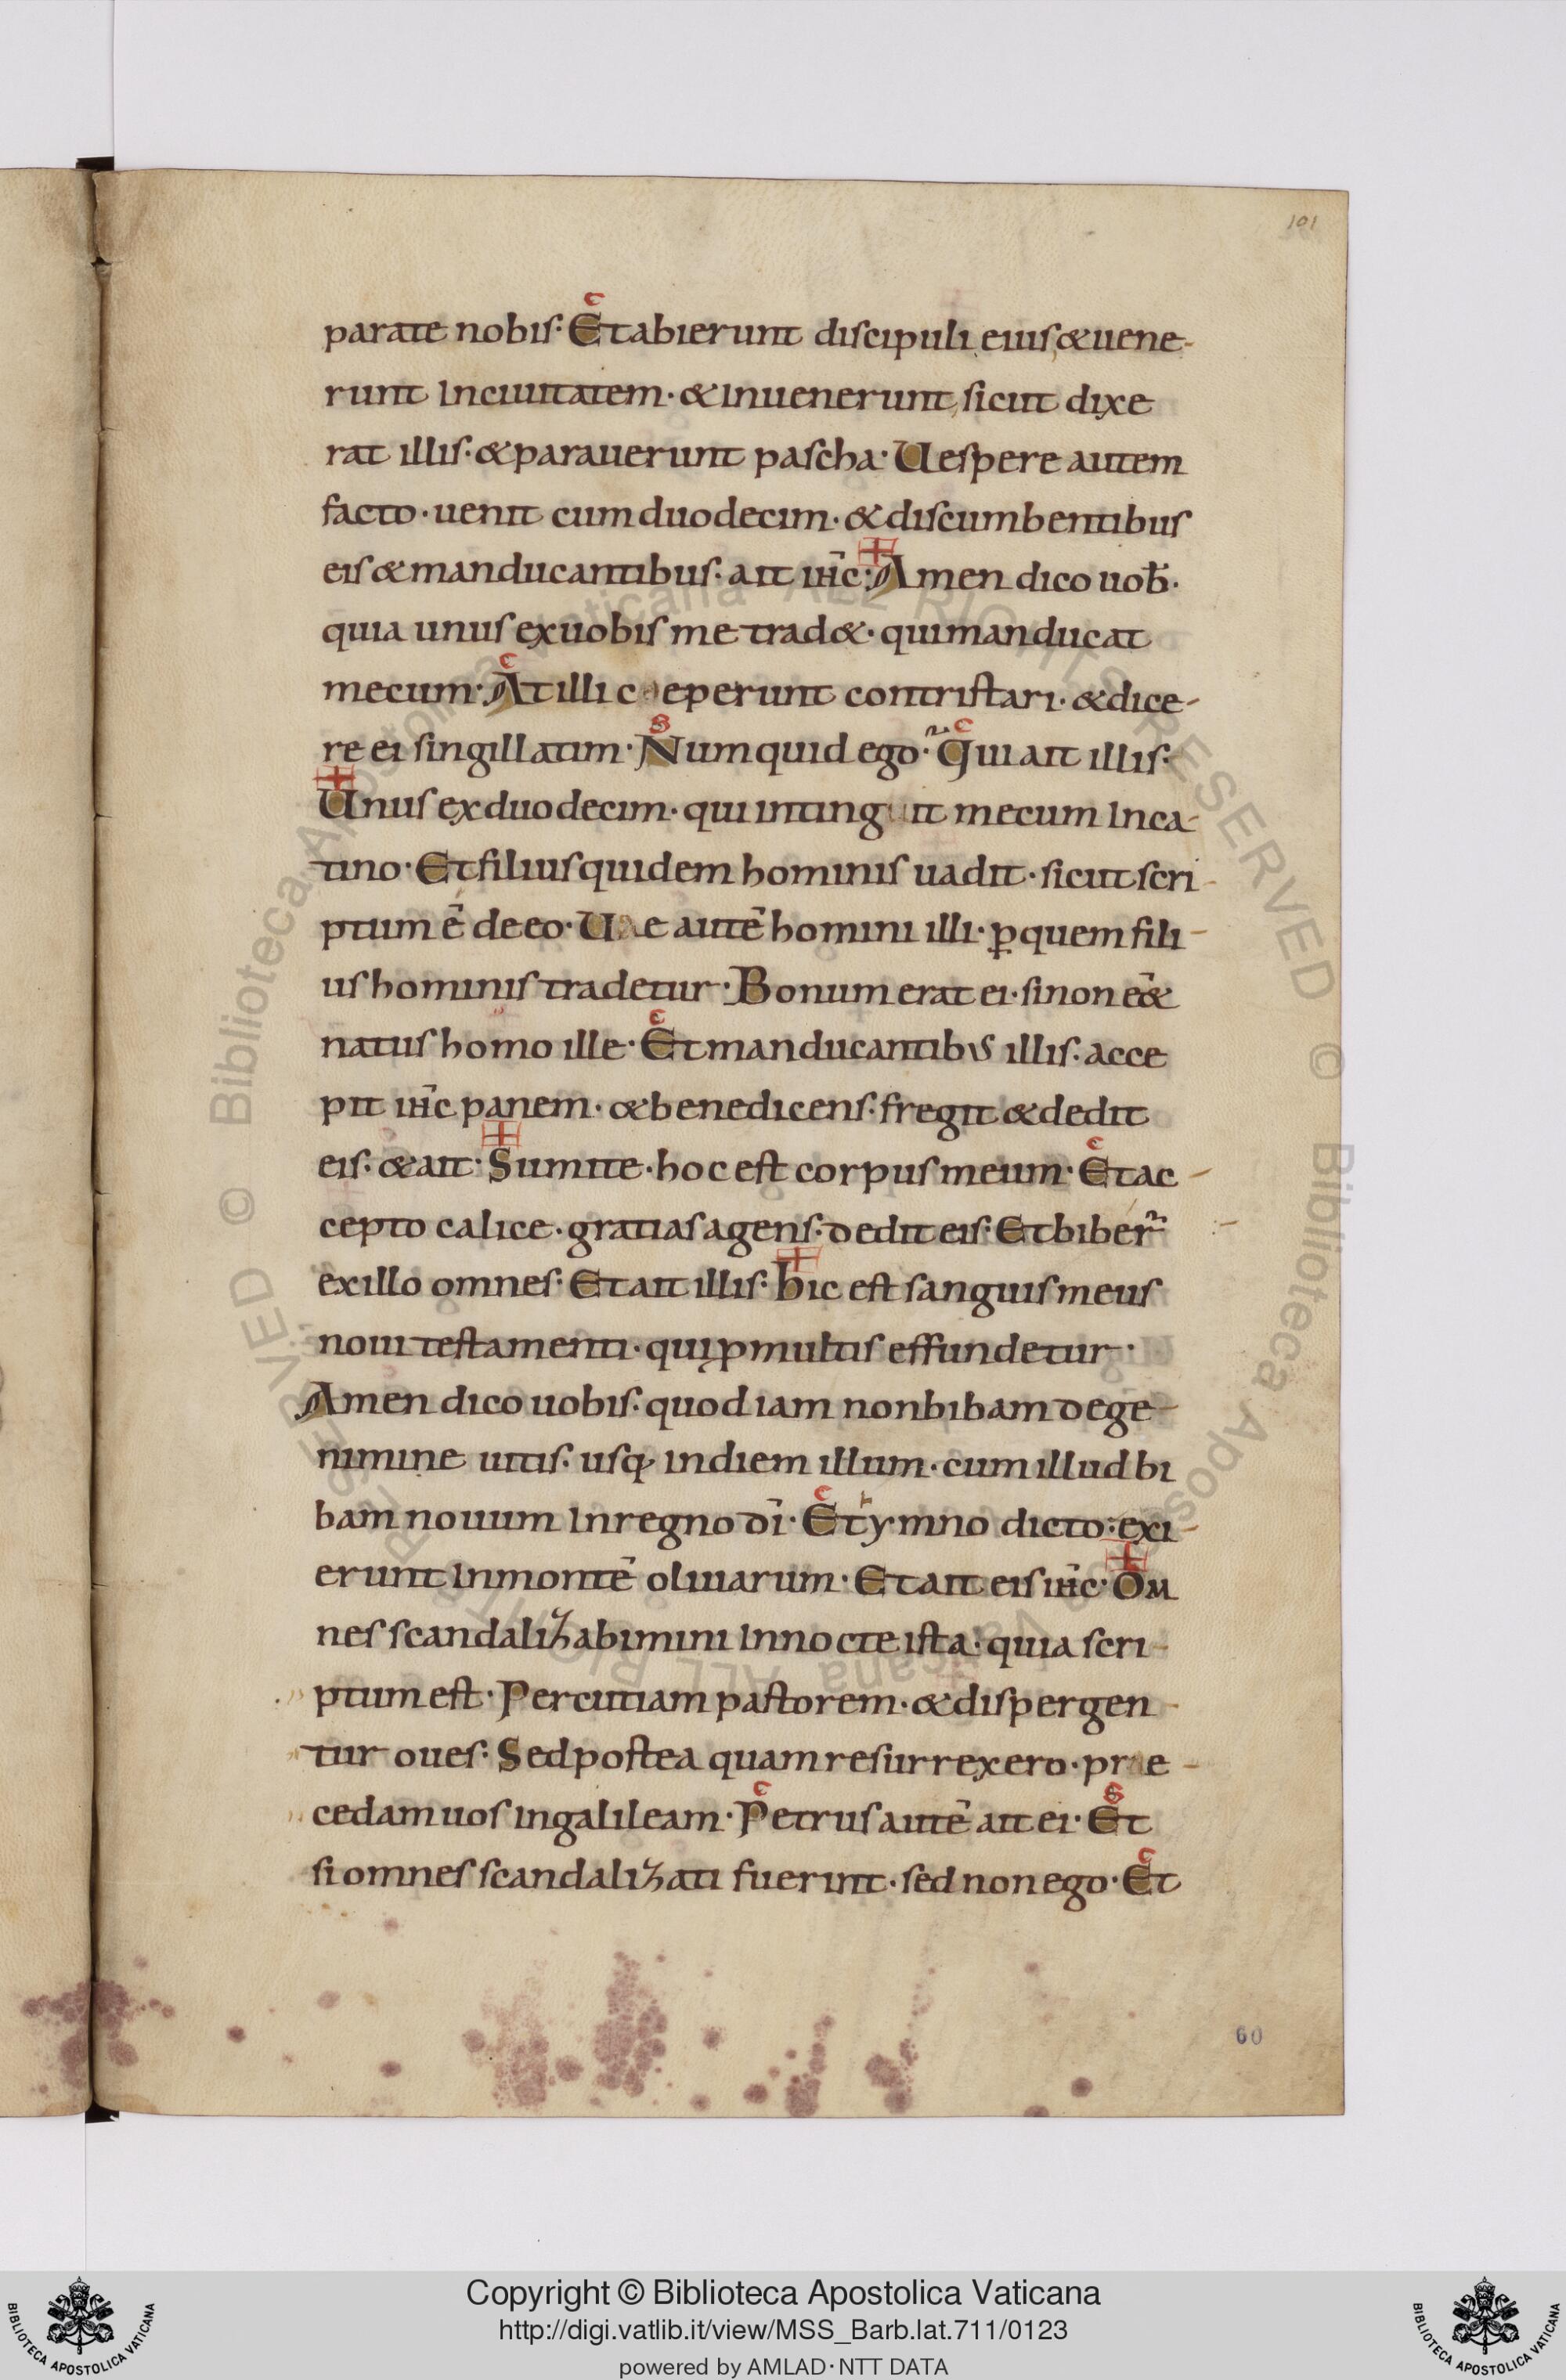 101
parate nobis· Et abierunt discipuli eius, & uene-
runt in ciuitatem· & inuenerunt, sicut dixe
rat illis· & parauerunt pascha· Uespere autem
facto· uenit cum duodecim· & discumbentibus
eis & manducantibus· ait ihc̄: Amen dico uob̄·
quia unus ex uobis me trad&· qui manducat
mecum· At illi c eperunt contristari· & dice-
re ei singillatim· Numquid ego· Qui ait illis·
Unus ex duodecim· qui intingit mecum in ca-
tino· Et filius quidem hominis uadit· sicut scri-
ptum ē de eo· Uae autē homini illi· ꝑ quem fili-
us hominis tradetur· Bonum erat ei· si non eē&
natus homo ille· Et manducantibus illis· acce
pit ihc̄ panem· & benedicens· fregit & dedit
eis· & ait· Sumite· hoc est corpus meum· Et ac-
cepto calice· gratias agens· dedit eis· Et biber̄
ex illo omnes· Et ait illis· hic est sanguis meus
noui testamenti· qui ꝓ multis effundetur·
Amen dico uobis· quod iam non bibam de ge-
nimine uitis· usq; in diem illum· cum illud bi
bam nouum in regno dī· Et ymno dicto· exi-
erunt in montē oliuarum· Et ait eis ihc̄· Om
nes scandalizabimini in nocte ista· quia scri-
ptum est· Percutiam pastorem· & dispergen-
tur oues· Sed postea quam resurrexero· prae-
cedam uos in galileam· Petrus autē ait ei· Et
si omnes scandalizati fuerint· sed non ego· Et
60
© Biblioteca Apostolica Vaticana ALL RIGHTS RESERVED
Copyright © Biblioteca Apostolica Vaticana
http://digi.vatlib.it/view/MSS_Barb.lat.711/0123
powered by AMLAD·NTT DATA
BIBLIOTECA APOSTOLICA VATICANA
BIBLIOTECA APOSTOLICA VATICANA